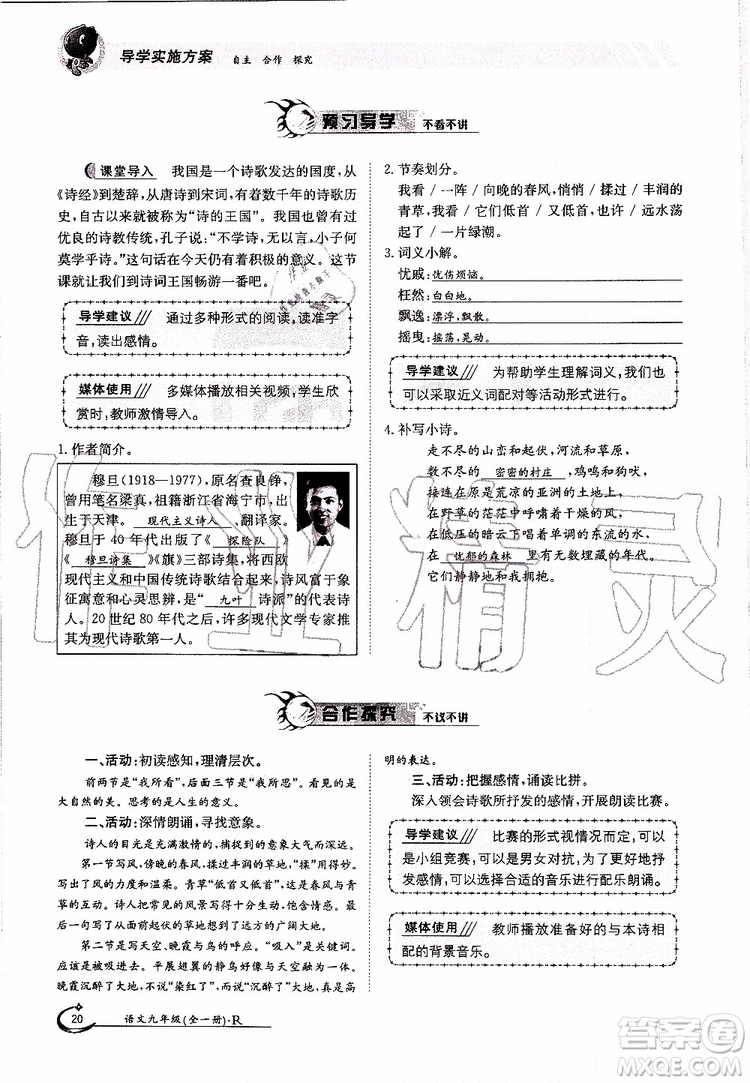 导学实施方案 自主 合作 探究
预习导学 不看不讲
课堂导入 我国是一个诗歌发达的国度，从
《诗经》到楚辞，从唐诗到宋词，有着数千年的诗歌历
史，自古以来就被称为“诗的王国”。我国也曾有过
优良的诗教传统，孔子说：“不学诗，无以言，小子何
莫学乎诗。”这句话在今天仍有积极的意义。这节
课就让我们到诗词王国畅游一番吧。
导学建议 通过多种形式的阅读，读准字
音，读出感情。
媒体使用 多媒体播放相关视频，学生欣
赏时，教师激情导入。
1. 作者简介。
穆旦(1918—1977)，原名查良铮，
曾用笔名梁真，祖籍浙江省海宁市，出
生于天津。 现代主义诗人 、翻译家。
穆旦于 40 年代出版了《 探险队 》
《 穆旦诗集 》《旗》三部诗集，将西欧
现代主义和中国传统诗歌结合起来，诗风富于象
征寓意和心灵思辨，是“ 九叶 诗派”的代表诗
人。20 世纪 80 年代之后，许多现代文学专家推其
为现代诗歌第一人。
2. 节奏划分。
我看 / 一阵 / 向晚的春风，悄悄 / 揉过 / 丰润的
青草，我看 / 它们低首 / 又低首，也许 / 远水荡
起了 / 一片绿潮。
3. 词义小解。
忧戚：忧伤烦恼。
枉然：白白地。
飘逸：漂浮，飘散。
摇曳：摇荡，晃动。
导学建议 为帮助学生理解词义，我们也
可以采取近义词配对等活动形式进行。
4. 补写小诗。
走不尽的山峦和起伏，河流和草原，
数不尽的 密密的村庄 ，鸡鸣和狗吠，
接连在原是荒凉的亚洲的土地上，
在野草的茫茫中呼啸着干燥的风，
在低压的暗云下唱着单调的东流的水，
在 忧郁的森林 里有无数埋藏的年代。
它们静静地和我拥抱。
合作探究 不议不讲
一、活动：初读感知，理清层次。
前两节是“我所看”，后面三节是“我所思”。我们看到
大自然的美。思考的是人生的意义。
二、活动：深情朗诵，寻找意象。
诗人的目光是充满激情的，接触到的意象大气而深远。
第一节写风，傍晚的春风，揉过丰润的草地，“揉”用得妙。
写出了风的力度和温柔。青草“低首又低首”，是春风与青草
的互动。最后一句写出了从面前起伏的草地到远方的广阔大地。
第二节是写天空、晚霞与鸟的呼应。“吸入”是关键词。
应该是被晚霞吸引进去。平展翅翼的静鸟好像与天空融为一体。
晚霞沉醉了大地，不说“染红了”而说“沉醉了大地”，真是高
明的表达。
三、活动：把握感情，诵读比拼。
深入领会诗歌所抒发的感情，开展朗读比赛。
导学建议 比赛的形式视情况而定，可以
是小组竞赛，可以是男女对抗。为了更好地抒
发感情，可以选择合适的音乐进行配乐朗诵。
媒体使用 教师播放准备好的与本诗相
配的背景音乐。
20 语文九年级(全一册)·R
作业精灵
答案圈
MXQE.COM